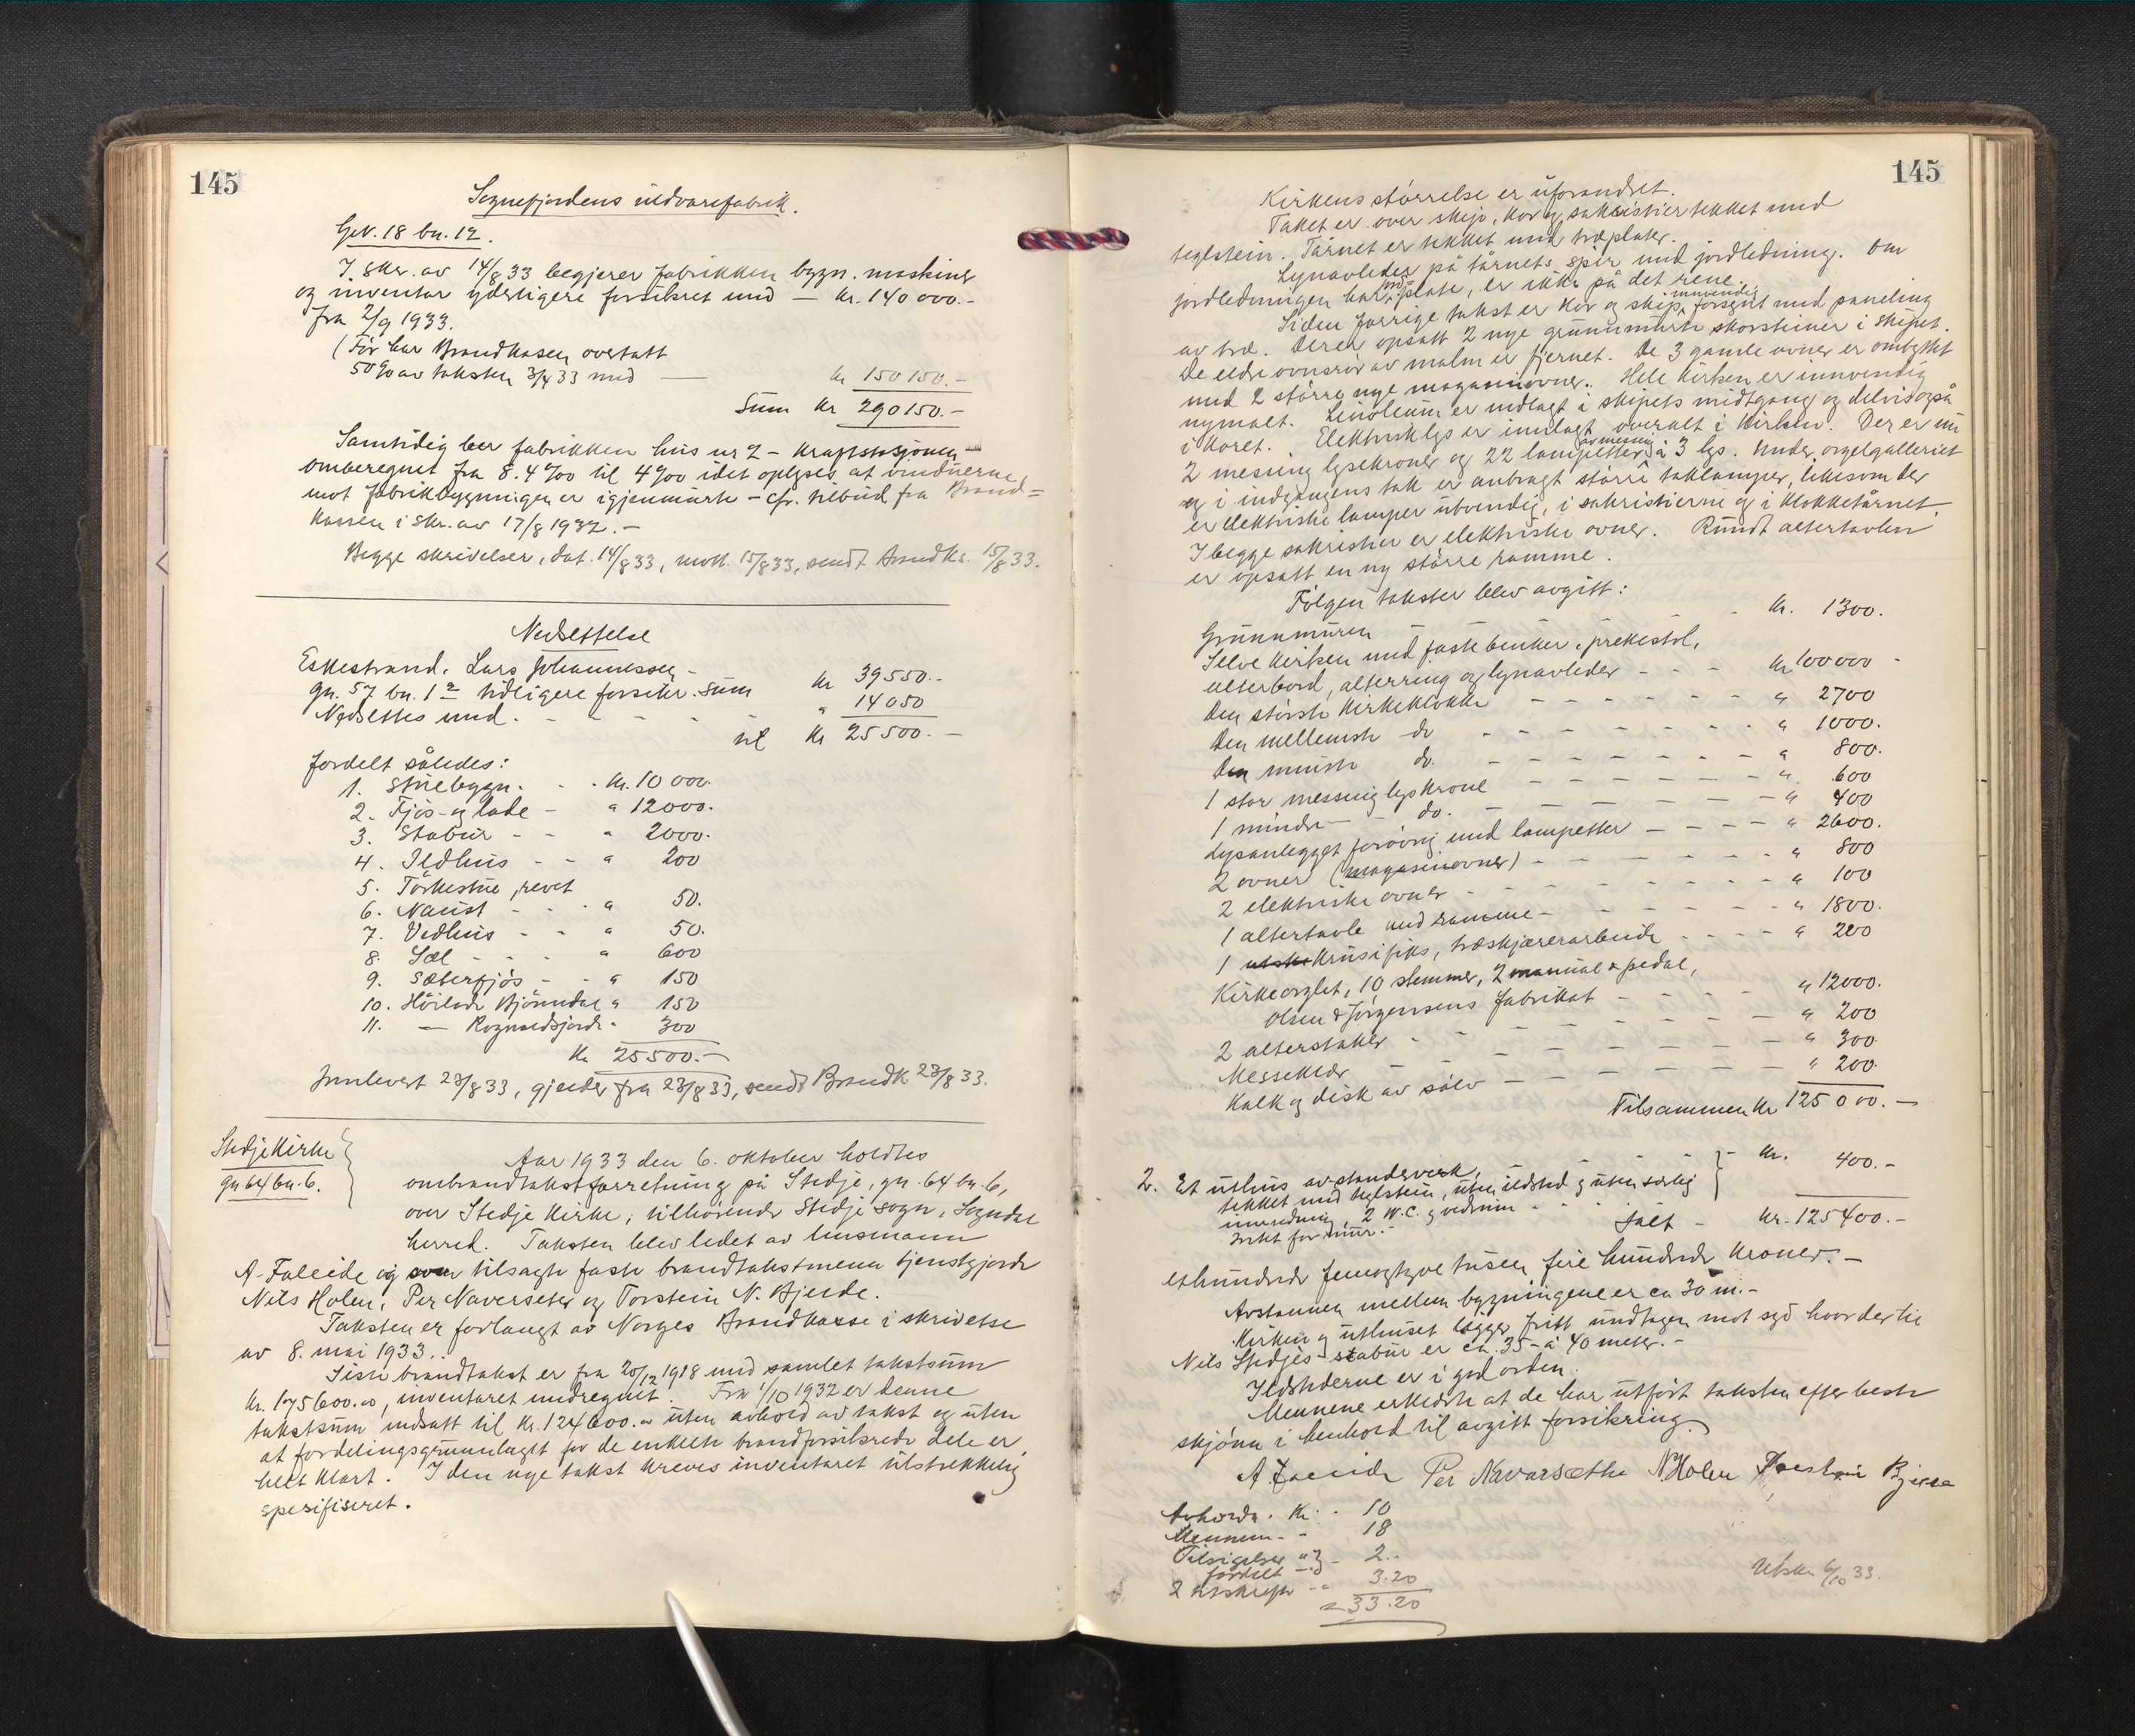 145
Sognefjordens uldvarefabrik.
Gnr. 18 bn. 12.
I skr. av 14/8 33 begjerer fabrikken bygn. maskiner
og inventar yderligere forsikret med — kr. 140 000.-
fra 2/9 1933.
(Før har Brandkassen overtatt
50% av taksten 3/4 33 med — kr 150 150.-
Sum kr 290 150.-
Samtidig ber fabrikken hus nr 2 - Kraftstasjonen -
omberegnet fra 8.4 ‰ til 4 ‰ idet oplyses at vinduerne
mot fabrikbygningen er igjenmurte - cfr. tilbud fra Brand=
kassen i skr. av 17/8 1932. -
Begge skrivelser, dat. 14/8 33, mott. 15/8 33, sendt Brandks. 15/8 33.
Nedsettelse
Eskestrand, Lars Johannessen -
gn. 57 bn. 1 tidligere forsikr. sum kr 39 550.-
Nedsettes med - - - - " 14 050
til kr 25 500. -
fordelt således:
1. Stuebygn. - - kr. 10 000.
2. Fjøs- og lade - " 12000.
3. Stabur - - " 2000.
4. Ildhus - - " 200
5. Tørkestue, revet
6. Naust - - - " 50.
7. Vedhus - - " 50.
8. Sæl - - - " 600
9. Sæterfjøs - - " 150
10. Höilade Bjönndal " 150
11. — Rognaldsjorde - 300
Kr 25 500.-
Innlevert 23/8 33, gjelder fra 23/8 33, sendt Brandk 23/8 33.
Stedje Kirke
gn 64 bn. 6.
Aar 1933 den 6. oktober holdtes
ombrandtakstforretning på Stedje, gn. 64 bn. 6,
over Stedje Kirke, tilhørende Stedje sogn, Sogndal
herred. Taksten blev ledet av lensmann
A. Faleide og som tilsagte faste brandtakstmenn tjenstgjorde
Nils Holen, Per Naverseter og Torstein N. Bjelde.
Taksten er forlangt av Norges Brandkasse i skrivelse
av 8. mai 1933.
Siste brandtakst er fra 20/12 1918 med samlet takstsum
kr. 175600.00, inventaret medregnet. Fra 1/10 1932 er denne
takstsum nedsatt til kr. 124600.00 uten avhold av takst og uten
at fordelingsgrunnlaget for de enkelte brandforsikrede dele er
helt klart. I den nye takst kreves inventaret tilstrekkelig
spesifiseret.
145
Kirkens størrelse er uforandret.
Taket er over skip, kor og sakristier tekket med
teglstein. Tårnet er tekket med
Lynavleder på tårnets spir med jordledning. Om
jordledningen har plate, er ikke på det rene.
Siden forrige takst er kor og skip innvendig forsynt med paneling
av træ. Der er opsatt 2 nye grunnmurte skorsteiner i skipet.
De eldre ovnsrør av malm er fjernet. De 3 gamle ovner er ombyttet
med 2 større nye magasinovner. Hele Kirken er innvendig
nymalt. Linoleum er nedlagt i skipets midtgang og delvis også
i koret. Elektrisk lys er innlagt overalt i Kirken. Der er nu
2 messing lysekroner og 22 lampetter av messing à 3 lys. Under orgelgalleriet
og i indgangens tak er anbragt større taklamper, likesom der
er elektriske lamper utvendig, i sakristierne og i klokketårnet.
I begge sakristier er elektriske ovner. Rundt altertavlen
er opsatt en ny større ramme.
Følgen takster blev avgitt:
Grunnmuren - - - kr. 1300.
Selve kirken med faste benker, prekestol,
alterbord, alterring og lynavleder - - - kr 100 000 -
Den største kirkeklokke - - - - - " 2700
Den mellemste do - - - - - " 1000.
Den minste do. - - - - - " 800.
1 stor messing lyskrone - - - - - " 600
1 mindre - do. - - - - - " 400
Lysanlegget forøvrig med lampetter - - - - " 2600.
2 ovner (magasinovner) - - - - - " 800
2 elektriske ovner - - - - - " 100
1 altertavle med ramme - - - - - " 1800.
1 krusifiks, træskjærerarbeide - - - - " 200
Kirkeorglet, 10 stemmer, 2 manual & pedal,
Olsen & Jørgensens fabrikat - - - - " 12000.
2 alterstaker - - - - - " 200
Messeklær - - - - - " 300
Kalk og disk av sølv - - - - - " 200.
Tilsammen kr 125 000. -
2. Et uthus av standerverk,
tekket med teglstein, uten ildsted og uten særlig
innredning, 2 W.C. og vedrum - - - kr. 400.-
Ialt - kr. 125400.-
ethundrede femogtyve tusen fire hundrede kroner. -
Avstannen mellem bygningene er ca 30 m. -
Kirken og uthuset ligger fritt undtagen mot syd hvor der til
Nils Stedjes stabur er ca. 35 - à 40 meter. -
Ildstederne er i god orden.
Mennene erklærte at de har utført taksten efter beste
skjønn i henhold til avgitt forsikring.
A Faleide Per Navarsæthe N. Holen Torstein Bjelde
Avholdn. Kr. - 10
Mennene - - 18
Tilsigelser " 2..
fordelt
2 utskrifter - " 3.20
= 33.20
Utskr 6/10 33.